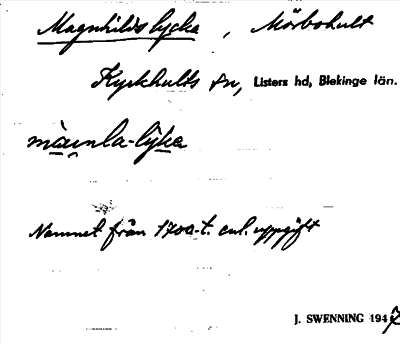 Magnhilds lycka, Mörbohult
Kyrkhults sn, Listers hd, Blekinge län.
Namnet från 1700-t. enl. uppgift
J. SWENNING 1947